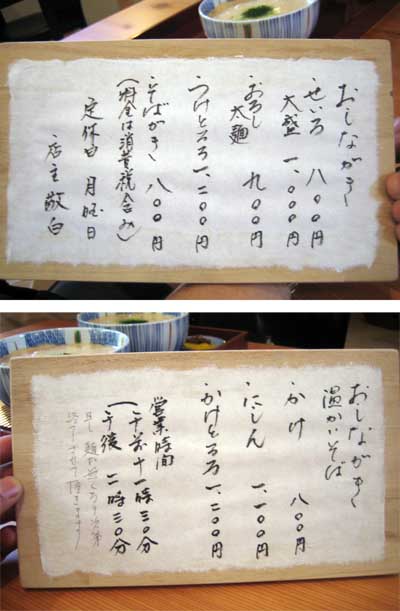 おしながき
せいろ 八〇〇円
大盛 一、〇〇〇円
おろし
太麺 九〇〇円
つけとろろ 一、二〇〇円
そばがき 八〇〇円
(料金は消費税含み)
定休日 月曜日
店主敬白
おしながき
温かいそば
かけ 八〇〇円
にしん 一、一〇〇円
かけとろろ 一、二〇〇円
営業時間
午前十一時三〇分
午後 二時三〇分